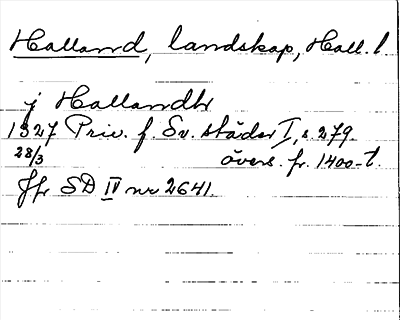 Halland, landskap, Hall. l.
j Hallandh
1327 Priv. f. Sv. städer I, s. 279.
28/3 övers. fr. 1400-t.
Jfr SD IV nr 2641.